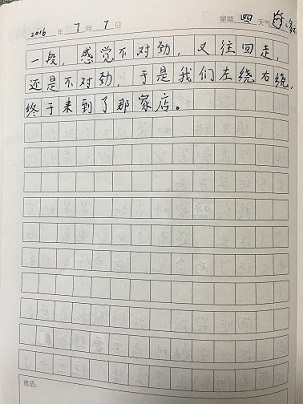 2016年7月7日 星期 四 天气
一段，感觉不对劲，又往回走，
还是不对劲，于是我们左绕右绕，
终于来到了那家店。
批语：